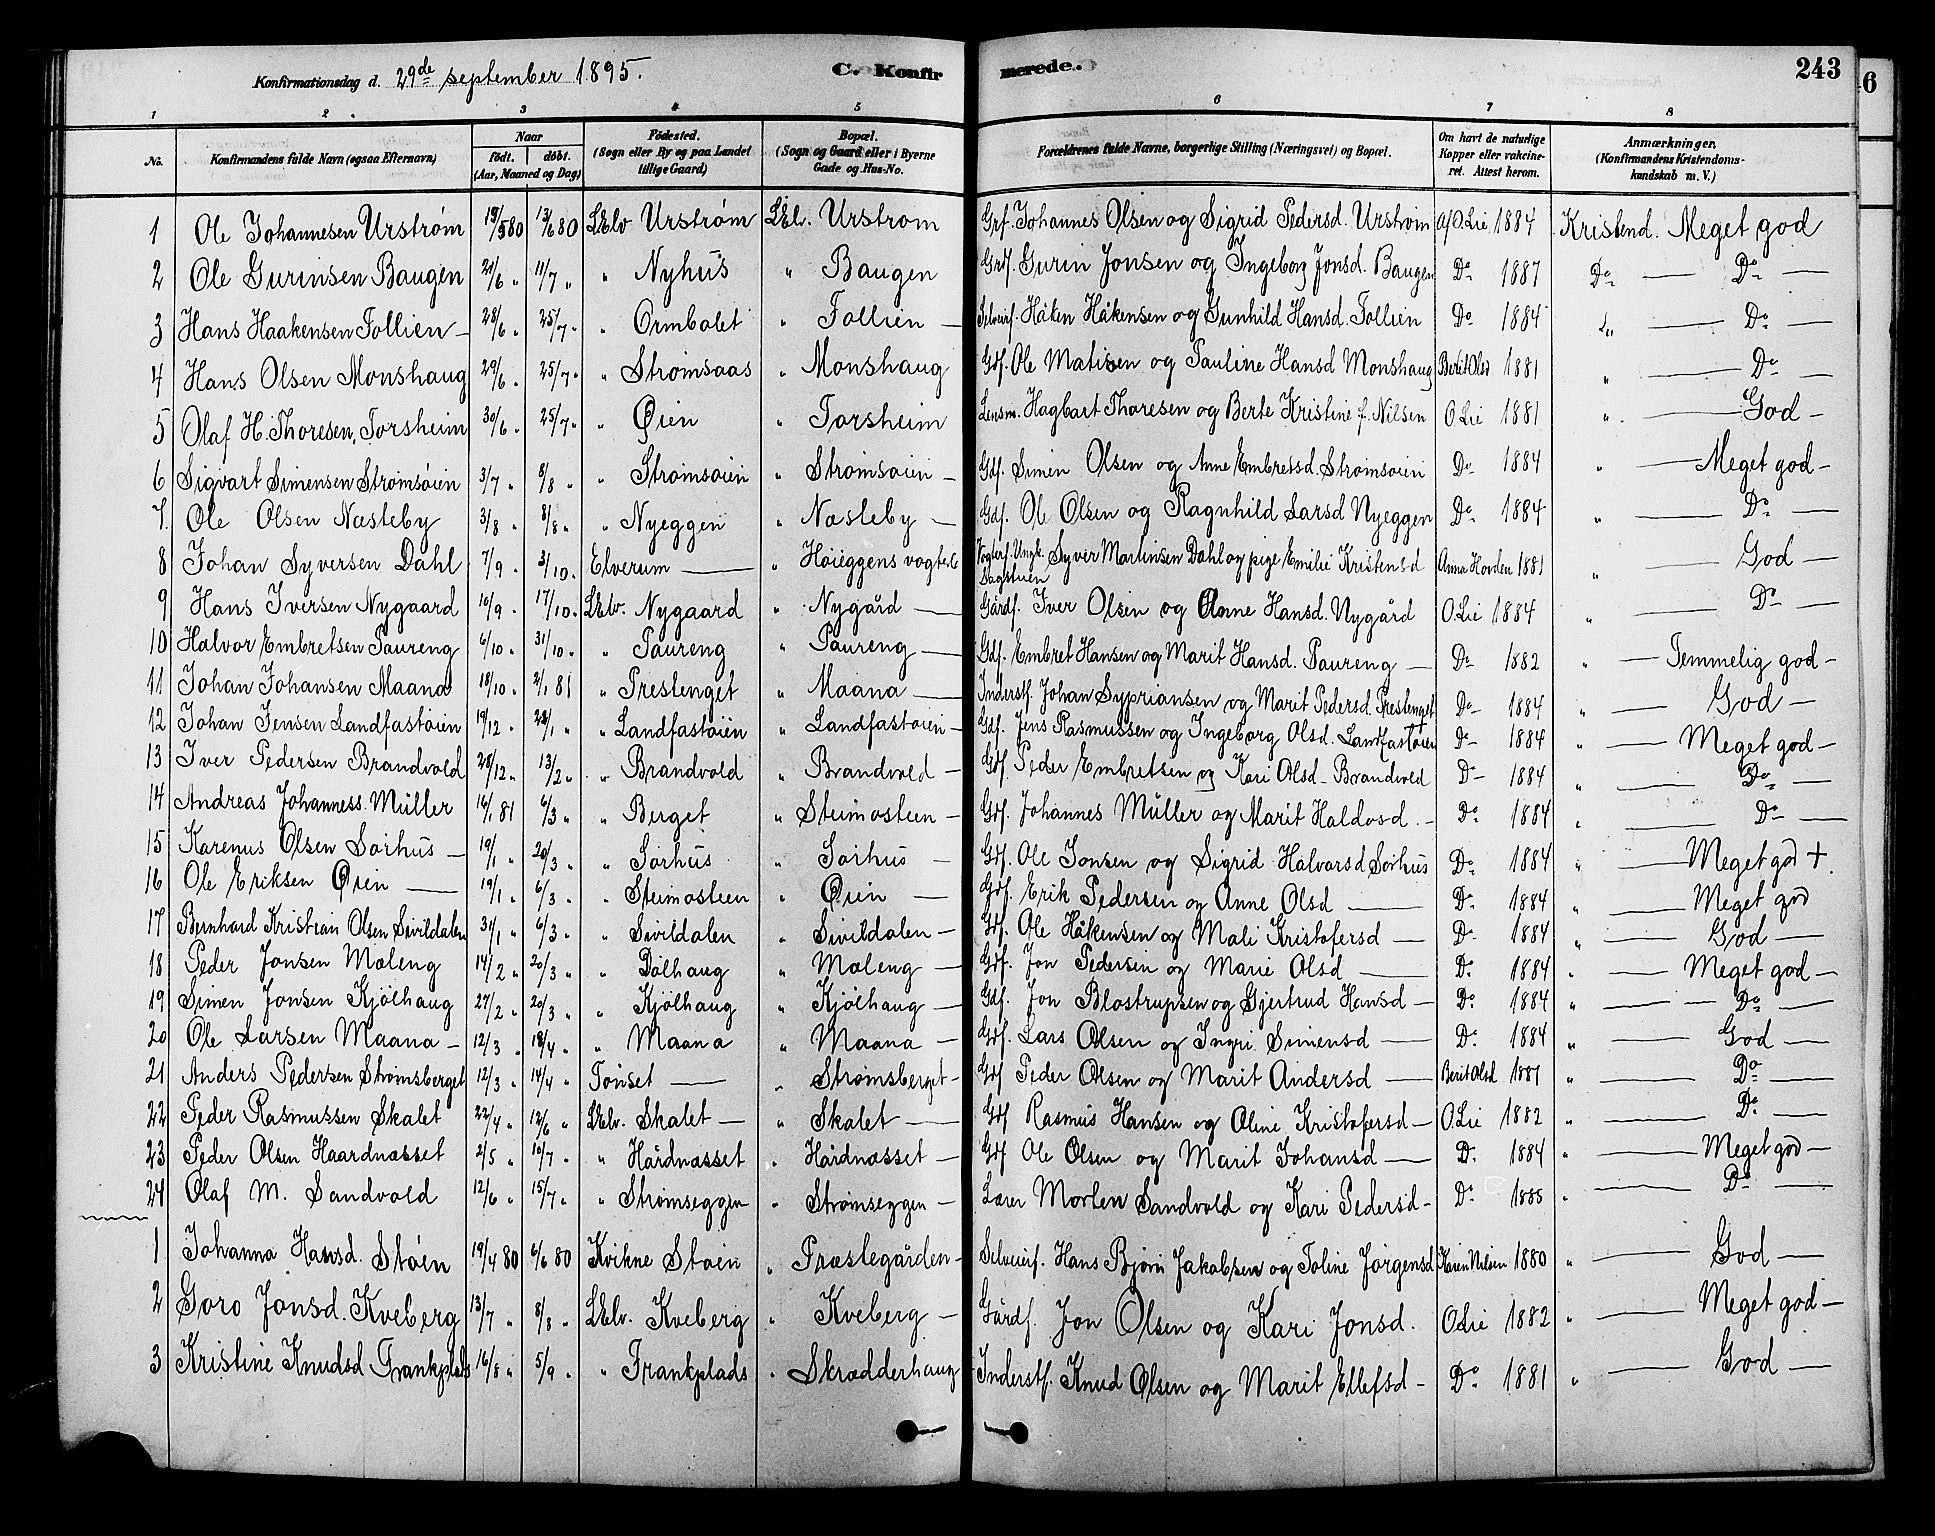 Konfirmationsdag d. 29de september 1895. C. Konfirmerede. 243
6
1 2 3 4 5 6 7 8
No. Konfirmandens fulde Navn (ogsaa Efternavn) Naar født. døbt. (Aar, Maaned og Dag) Fødested. (Sogn eller By og paa Landet tillige Gaard) Bopæl. (Sogn og Gaard eller i Byerne Gade og Hus-No. Forældrenes fulde Navne, borgerlige Stilling (Næringsvei) og Bopæl. Om havt de naturlige Kopper eller vakcineret. Attest herom. Anmærkninger. (Konfirmandens Kristendomskundskab m. V.)
1 Ole Johannesen Urstrøm 19/5 80 13/6 80 LElv Urstrøm LEl. Urstrom Grf. Johannes Olsen og Sigrid Pedersd. Urstrøm af O.Lie 1884 Kristend. Meget god
2 Ole Gurinsen Baugen 21/6 " 11/7 " " Nyhus " Baugen Grdf. Gurin Jonsen og Ingeborg Jonsd. Baugen Do 1887 Do — Do —
3 Hans Haakensen Follien — 28/6 " 25/7 " " Ormbolet " Follien — Selveirf. Håken Håkensen og Gunhild Hansd. Follien Do 1884 " — Do —
4 Hans Olsen Monshaug 29/6 " 25/7 " " Strømsaas " Monshaug Gdf. Ole Matisen og Pauline Hansd Monshaug Berit Olsd 1881 " — Do —
5 Olaf H. Thoresen, Forsheim 30/6 " 25/7 " " Øien " Forsheim Lensm. Hagbart Thoresen og Berte Kristine f. Nilsen O Lie 1881 " — God —
6 Sigvart Simensen Strømsøien 3/7 " 8/8 " " Strømsøien " Strømsøien — Gdf. Simen Olsen og Anne Embretsd. Strømsøien Do 1884 " — Meget god —
7. Ole Olsen Næsteby 3/8 " 8/8 " " Nyeggen " Næsteby — Gdf. Ole Olsen og Ragnhild Larsd Nyeggen Do 1884 " — Do —
8 Johan Syversen Dahl 7/9 " 3/10 " Elverum — " Høieggens vogterb Vogterf. Ungk. Syver Martinsen Dahl og pige Emilie Kristensd Anna Hovden 1881 " — God —
Dagstuen
9 Hans Iversen Nygaard 10/9 " 17/10 " LElv. Nygaard " Nygård — Gårdf. Iver Olsen og Anne Hansd. Nygård O.Lie 1884 " — Do —
10 Halvor Embretsen Paureng 6/10 " 31/10 " " Paureng " Paureng — Gdf. Embret Hansen og Marit Hansd. Paureng — Do 1882 " — Temmelig god —
11 Johan Johansen Maana 18/10 " 2/1 81 " Prestenget " Maana — Inderstf. Johan Sypriansen og Marit Pedersd. Prestenget Do 1884 " — God —
12 Johan Jensen Landfastøien 19/12 " 23/1 " " Landfastøien " Landfastøien — Gdf. Jens Rasmussen og Ingeborg Olsd. Landfastøien Do 1884 " — Meget god —
13 Iver Pedersen Brandvold 28/12 " 13/2 " " Brandvold " Brandvold — Gdf Peder Embretsen og Kari Olsd — Brandvold Do 1884 " — Do —
14 Andreas Johanness. Müller 16/1 81 6/3 " " Berget " Steimosteen — Gdf. Johannes Müller og Marit Haldosd. — Do 1884 " — Do —
15 Karenus Olsen Sørhus — 19/1 " 20/3 " " Sørhus " Sørhus — Gdf. Ole Jonsen og Sigrid Halvorsd Sørhus Do 1884 " — Meget god +.
16 Ole Eriksen Øien — 19/1 " 6/3 " " Steimosteen " Øien — Gdf. Erik Pedersen og Anne Olsd — Do 1884 " — Meget god
17 Bernhard Kristian Olsen Sivildalen 31/1 " 6/3 " " Sivildalen " Sivildalen — Gdf. Ole Håkensen og Mali Kristofersd — Do 1884 " — God —
18 Peder Jonsen Mæleng 14/2 " 20/3 " " Dølhaug " Mæleng — Gdf. Jon Pedersen og Marie Olsd — Do 1884 " — Meget god —
19 Simen Jonsen Kjølhaug 27/2 " 20/3 " " Kjølhaug " Kjølhaug — Gdf. Jon Blostrupsen og Gjertrud Hansd — Do 1884 " — Do —
20 Ole Larsen Maana — 12/3 " 18/4 " " Maana " Maana — Gdf. Lars Olsen og Ingri Simensd — Do 1884 " — God —
21 Anders Pedersen Strømsberget 12/3 " 14/4 " Tønset — " Strømsberget — Gdf Peder Olsen og Marit Andersd — Berit Olsd 1881 " — Do —
22 Peder Rasmussen Skalet 22/4 " 12/6 " LElv. Skalet — " Skalet — Gdf Rasmus Hansen og Oline Kristofersd — O.Lie 1882 " — Do —
23 Peder Olsen Haardnæsset 2/5 " 10/7 " " Hårdnæsset " Hårdnæsset — Gdf Ole Olsen og Marit Johansd — Do 1884 " — Meget god —
24 Olaf M. Sandvold 12/6 " 15/7 " " Strømseggen " Strømseggen — Lærer Morten Sandvold og Kari Pedersd — Do 1885 " — Do —
1 Johanna Hansd. Støen 19/4 80 6/6 80 Kvikne Støen " Præstegården — Selveierf. Hans Bjørn Jakobsen og Toline Jørgensd Karen Nilsen 1880 " — God —
2 Goro Jonsd. Kveberg 13/7 " 8/8 " LElv. Kveberg " Kveberg — Gårdf. Jon Olsen og Kari Jonsd. O.Lie 1882 " — Meget god —
3 Kristine Knudsd Frankplads 16/8 " 5/9 " " Frankplads " Skrædderhaug — Inderstf. Knud Olsen og Marit Ellefsd — Do 1881 " — God —